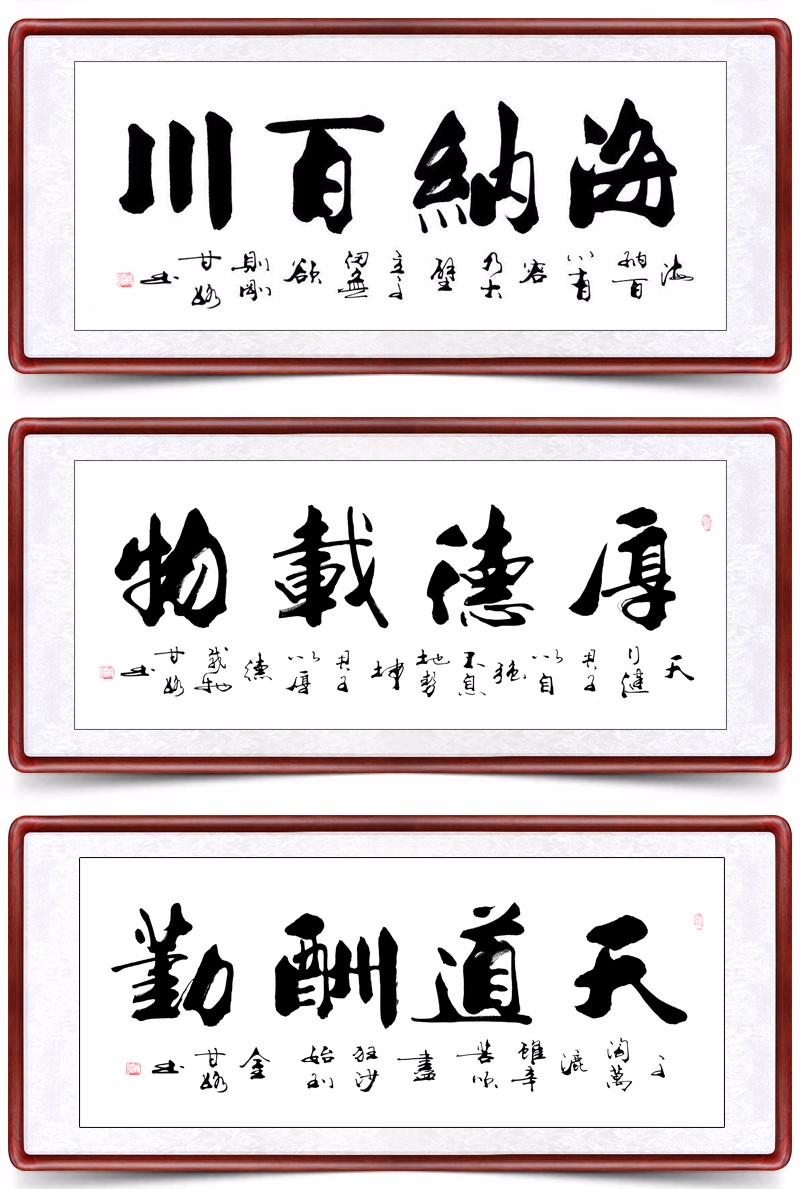 海納百川
海納百川有容乃大壁立千仞無欲則剛 甘 书
厚德載物
天行健君子以自強不息地勢坤君子以厚德載物 甘 书
天道酬勤
千淘萬漉雖辛苦吹盡狂沙始到金 甘 书